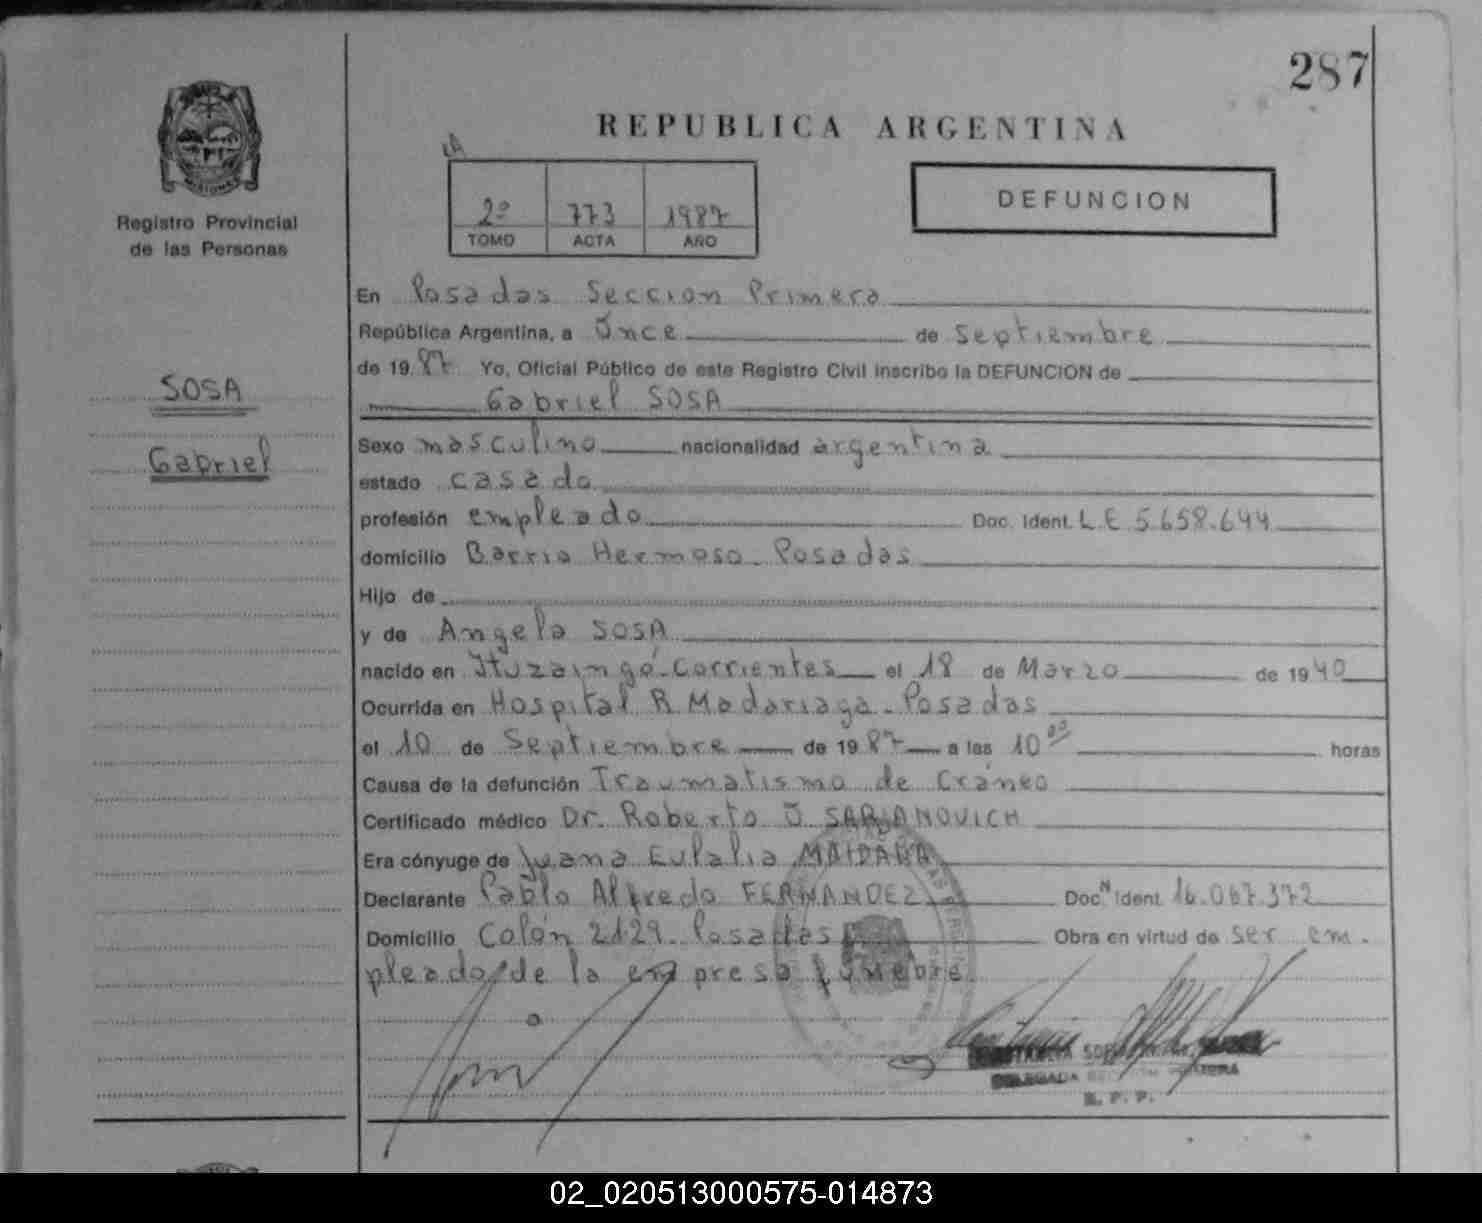 287
REPUBLICA ARGENTINA
DEFUNCION
MISIONES
Registro Provincial
de las Personas
2º 773 1987
TOMO ACTA AÑO
SOSA
Gabriel
En Posadas Seccion Primera
República Argentina, a Once de Septiembre
de 1987 Yo, Oficial Público de este Registro Civil inscribo la DEFUNCION de
Gabriel SOSA
Sexo masculino nacionalidad argentina
estado casado
profesión empleado Doc. Ident. L.E 5.658.644
domicilio Barrio Hermoso - Posadas
Hijo de
y de Angela SOSA
nacido en Ituzaingó - Corrientes el 18 de Marzo de 1940
Ocurrida en Hospital R. Madariaga - Posadas
el 10 de Septiembre de 1987 a las 10 00 horas
Causa de la defunción Traumatismo de Cráneo
Certificado médico Dr. Roberto
Era cónyuge de Juana Eulalia
Declarante Pablo Alfredo FERNANDEZ Doc. Ident. 16.067.372
Domicilio Colón 2129 - Posadas Obra en virtud de ser em-
pleado de la empresa fúnebre
DELEGADA SECCION PRIMERA
R. P. P.
02_020513000575-014873